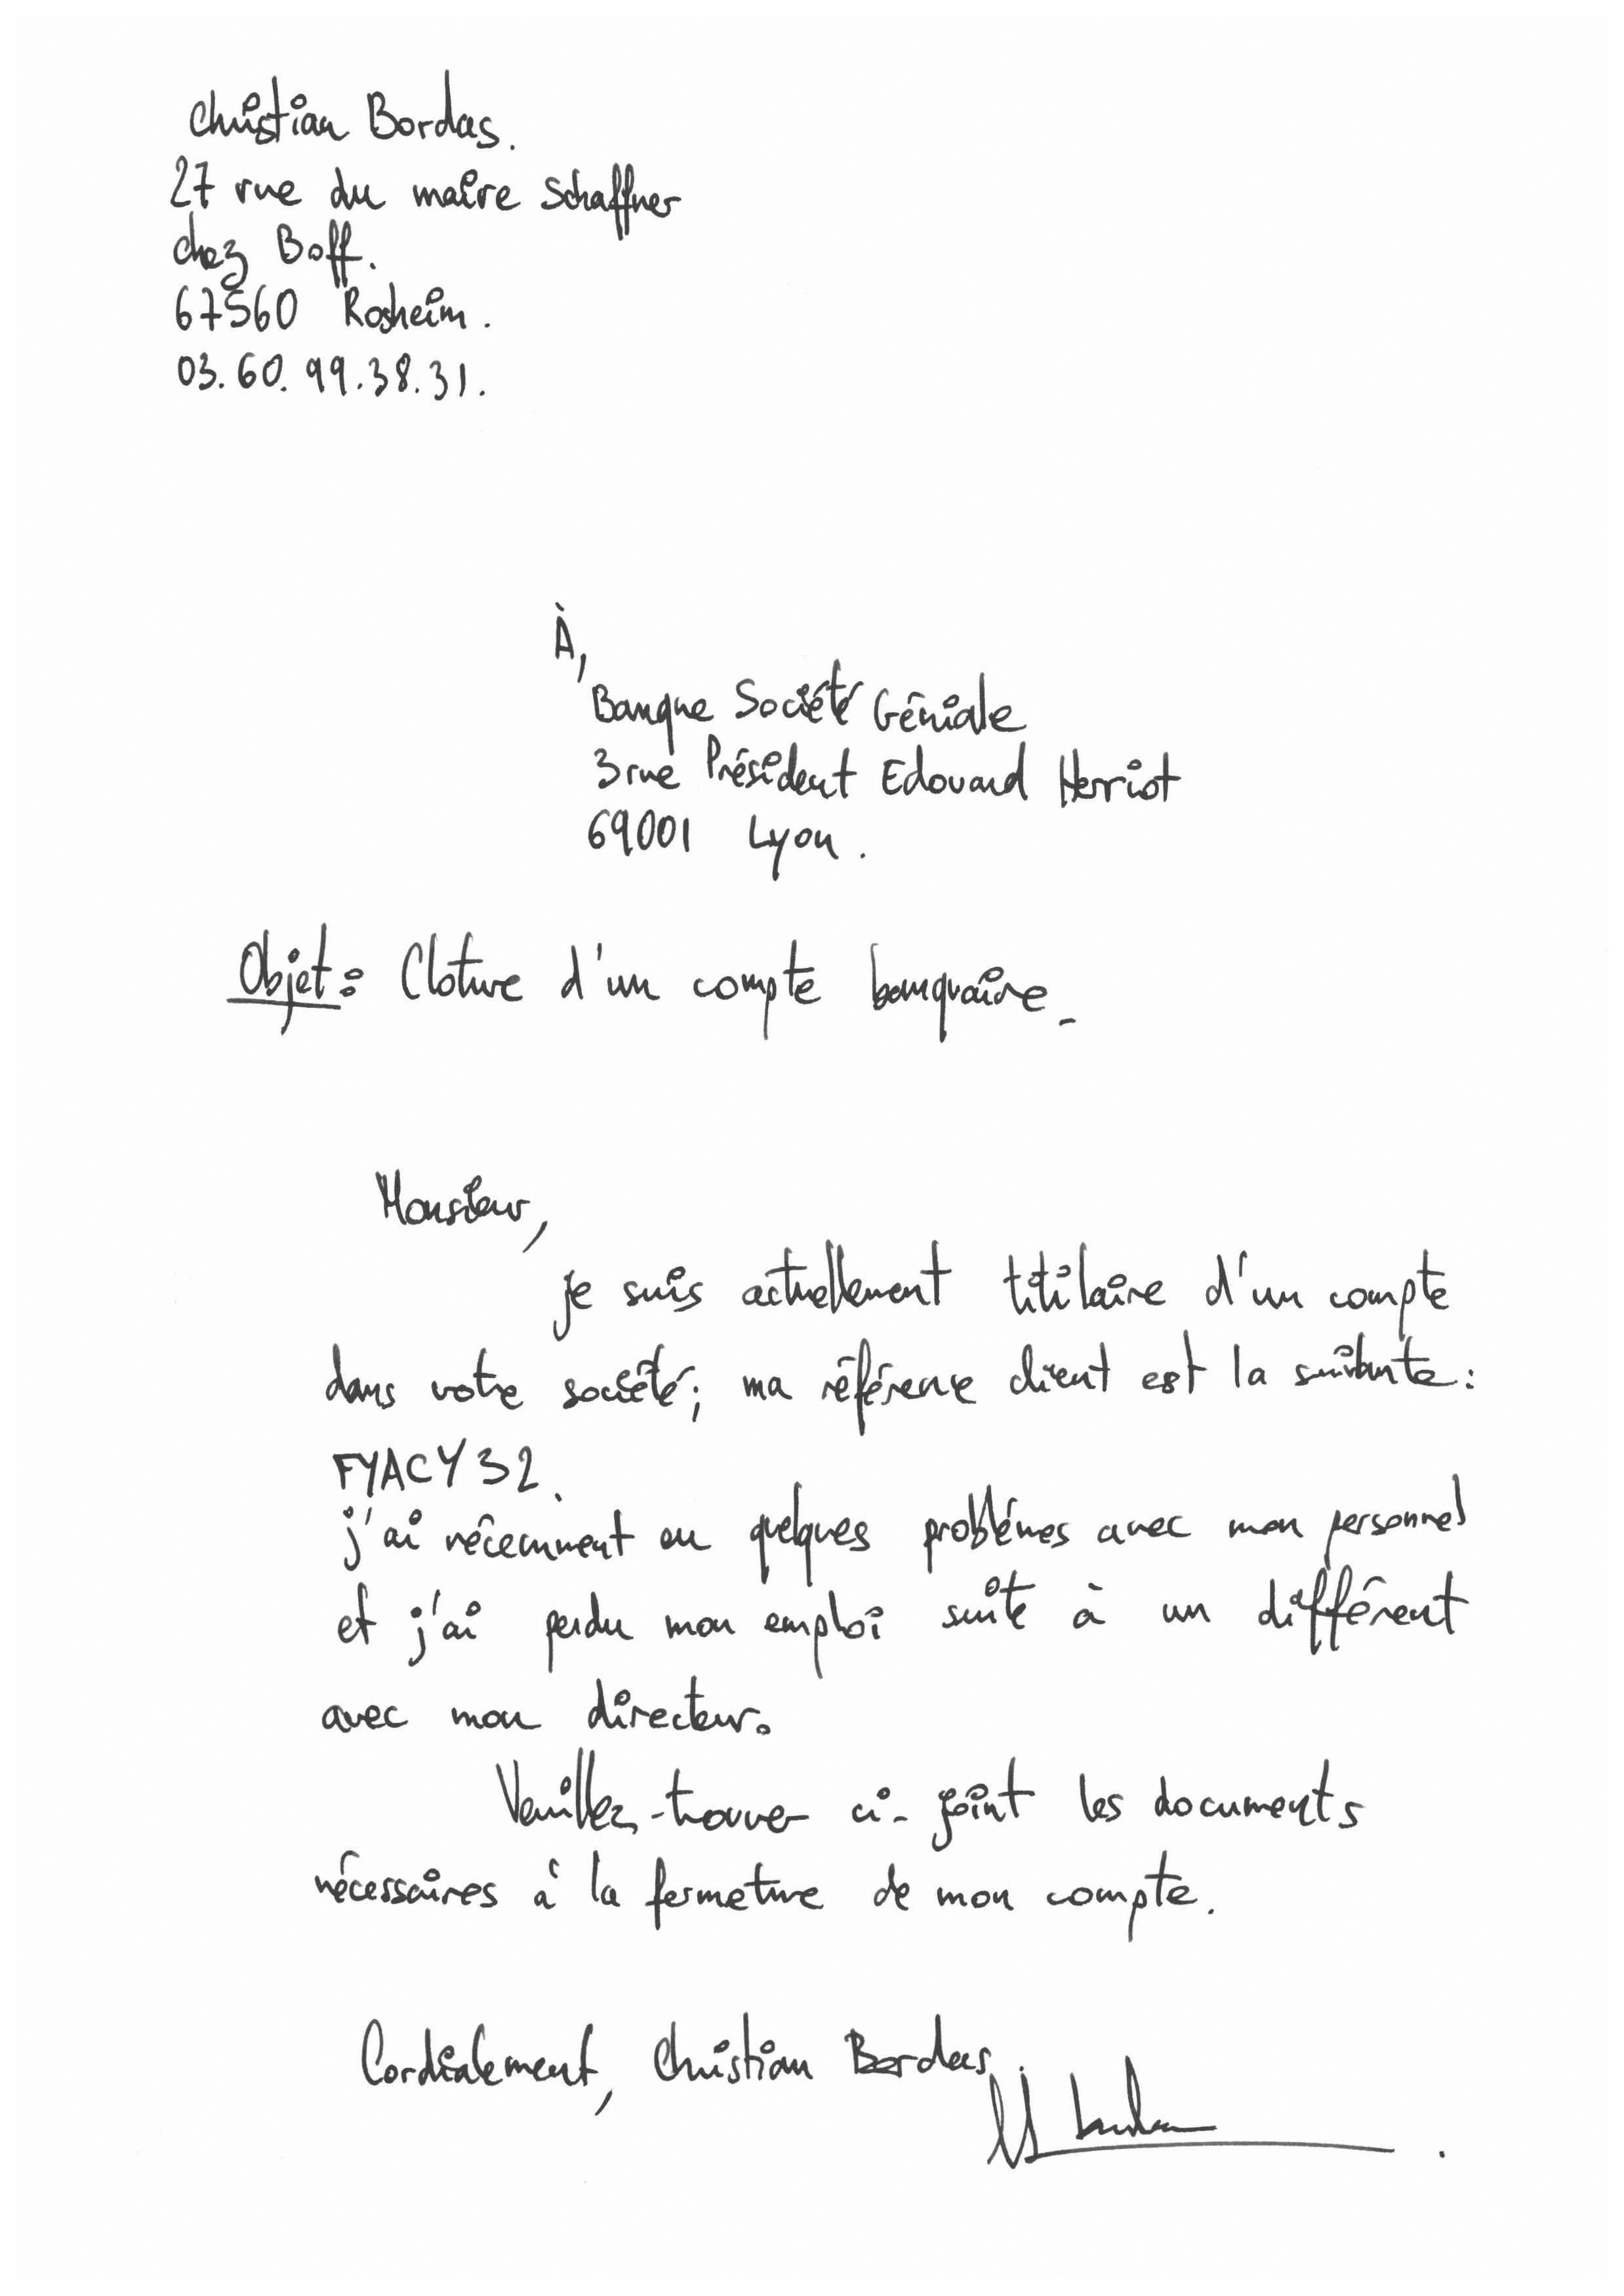 Christian Bordas.
27 rue du maire Schaffner
chez Boff.
67560 Rosheim.
03.60.99.38.31.
À,
Banque Société Géniale
3 rue Président Edouard Herriot
69001 Lyon.
Objet: Cloture d'un compte banquaire.
Monsieur,
je suis actuellement titilaire d'un compte
dans votre société; ma référence client est la suivante:
FYACY32.
j'ai récemment eu quelques problémes avec mon personnel
et j'ai perdu mon emploi suite à un différent
avec mon directeur.
Veuillez-trouver ci-joint les documents
nécessaires à la fermeture de mon compte.
Cordialement, Christian Bordas.